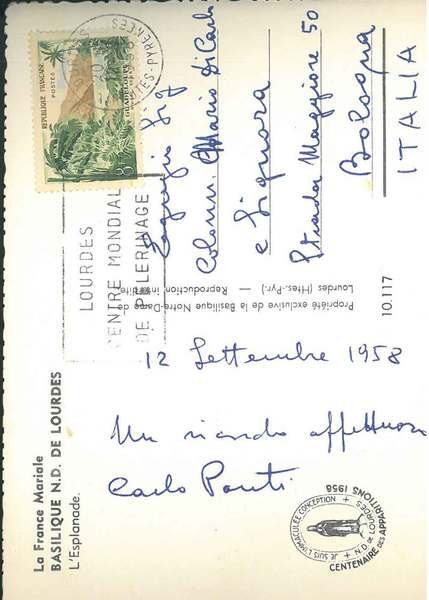 La France Mariale
BASILIQUE N.D. DE LOURDES
L'Esplanade.
12 Settembre 1958
Un ricordo affettuoso
Carlo Ponti
CENTENAIRE DES APPARITIONS 1958
+ JE SUIS L'IMMACULÉE CONCEPTION +
N.D. DE LOURDES
Propriété exclusive de la Basilique Notre-Dame de
Lourdes (Htes.-Pyr.) — Reproduction interdite
10.117
RÉPUBLIQUE FRANÇAISE
POSTES
GUADELOUPE
HTES-PYRENEES
LOURDES
CENTRE MONDIAL
DE PELERINAGE
Sig
Colonn. Mario Di Carlo
e Signora
Strada Maggiore 50
Bologna
ITALIA